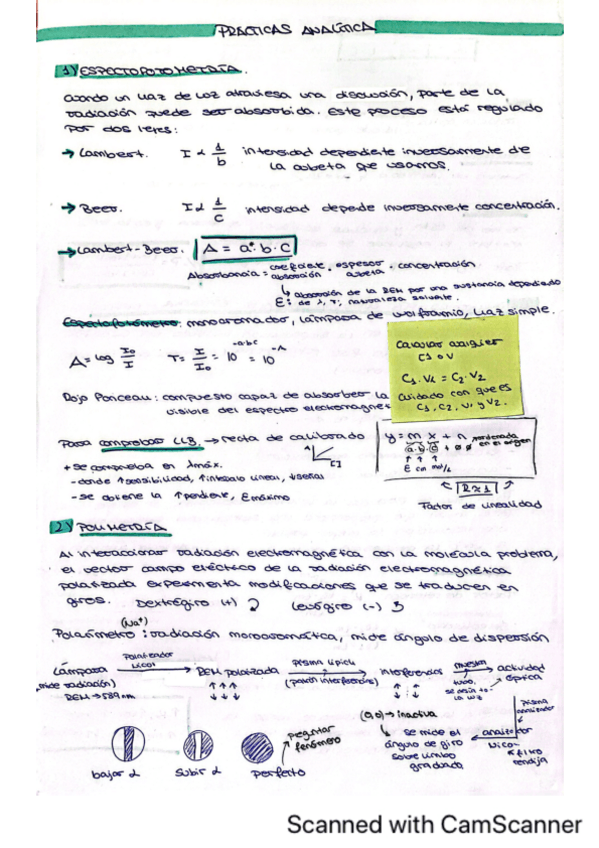 PRÁCTICAS ANALÍTICA
1) ESPECTOFOTOMETRÍA.
Cuando un haz de luz atraviesa una disolución, parte de la
radiación puede ser absorbida. Este proceso está regulado
por dos leyes:
→ Lambert. I α 1/b intensidad dependiente inversamente de
la cubeta que usamos.
→ Beer. I α 1/C intensidad depende inversamente concentración.
→ Lambert-Beer. A = a·b·C
Absorbancia = coeficiente absorción · espesor cubeta · concentración
↳ absorción de la REM por una sustancia dependiendo
E: de λ, T, naturaleza solvente.
Espectofotómetro: monocromador, lámpara de wolframio, haz simple.
A = log I₀/I T = I/I₀ = 10^-a·b·c = 10^-A
Calcular cualquier
C1 o V
C₁·V₁ = C₂·V₂
Cuidado con que es
C₁, C₂, V₁ y V₂.
Rojo Ponceau: compuesto capaz de absorber la
visible del espectro electromagnét
Para comprobar LLB. → recta de calibrado
A C]
y = m x + n ordenada en el origen
(a·b)(c) +
E cm mol/L
R≈1
Factor de linealidad
+ se comprueba en λmáx.
- donde ↑sensibilidad, ↑intervalo lineal, ↓señal
- se obtiene la ↑pendiente, E máximo
2) POLIMETRÍA
Al interaccionar radiación electromagnética con la molécula problema,
el vector campo eléctrico de la radiación electromagnética
polarizada experimenta modificaciones que se traducen en
giros. Dextrógiro (+) Levógiro (-)
(Na⁺)
Polarímetro: radiación monocromática, mide ángulo de dispersión
Lámpara
(mide radiación)
REM → 589 nm
Polarizador
Nicol
REM polarizada
↑ ↑ ↑
↓ ↓ ↓
prisma Lipich
(provoca interferencias)
interferencias
muestra
se desvía
la luz
actividad
óptica
prisma
analizador
analizador
Nicol
filtro
rendija
(0,0) → inactiva
↳ se mide el
ángulo de giro
sobre limbo
graduado
bajar α
subir α
perfecto
preguntar
fenómeno
Scanned with CamScanner